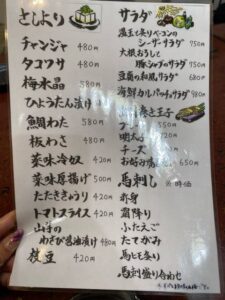 としより
チャンジャ 480円
タコワサ 480円
梅水晶 580円
ひょうたん漬け
鯛わた 580円
板わさ 580円
薬味冷奴 420円
薬味厚揚げ 500円
たたききゅうり 420円
トマトスライス 420円
山芋の
わさび醤油漬け 480円
枝豆 420円
サラダ
温玉と炙りベーコンの
シーザーサラダ 750円
大根おろしと
豚しゃぶのサラダ 750円
豆腐の和風サラダ 680円
海鮮カルパッチョサラダ 980円
巻き玉子
明太子
チーズ
お好み
馬刺し ※時価
赤身
霜降り
ふたえご
たてがみ
馬ヒモ炙り
馬刺盛り合わせ